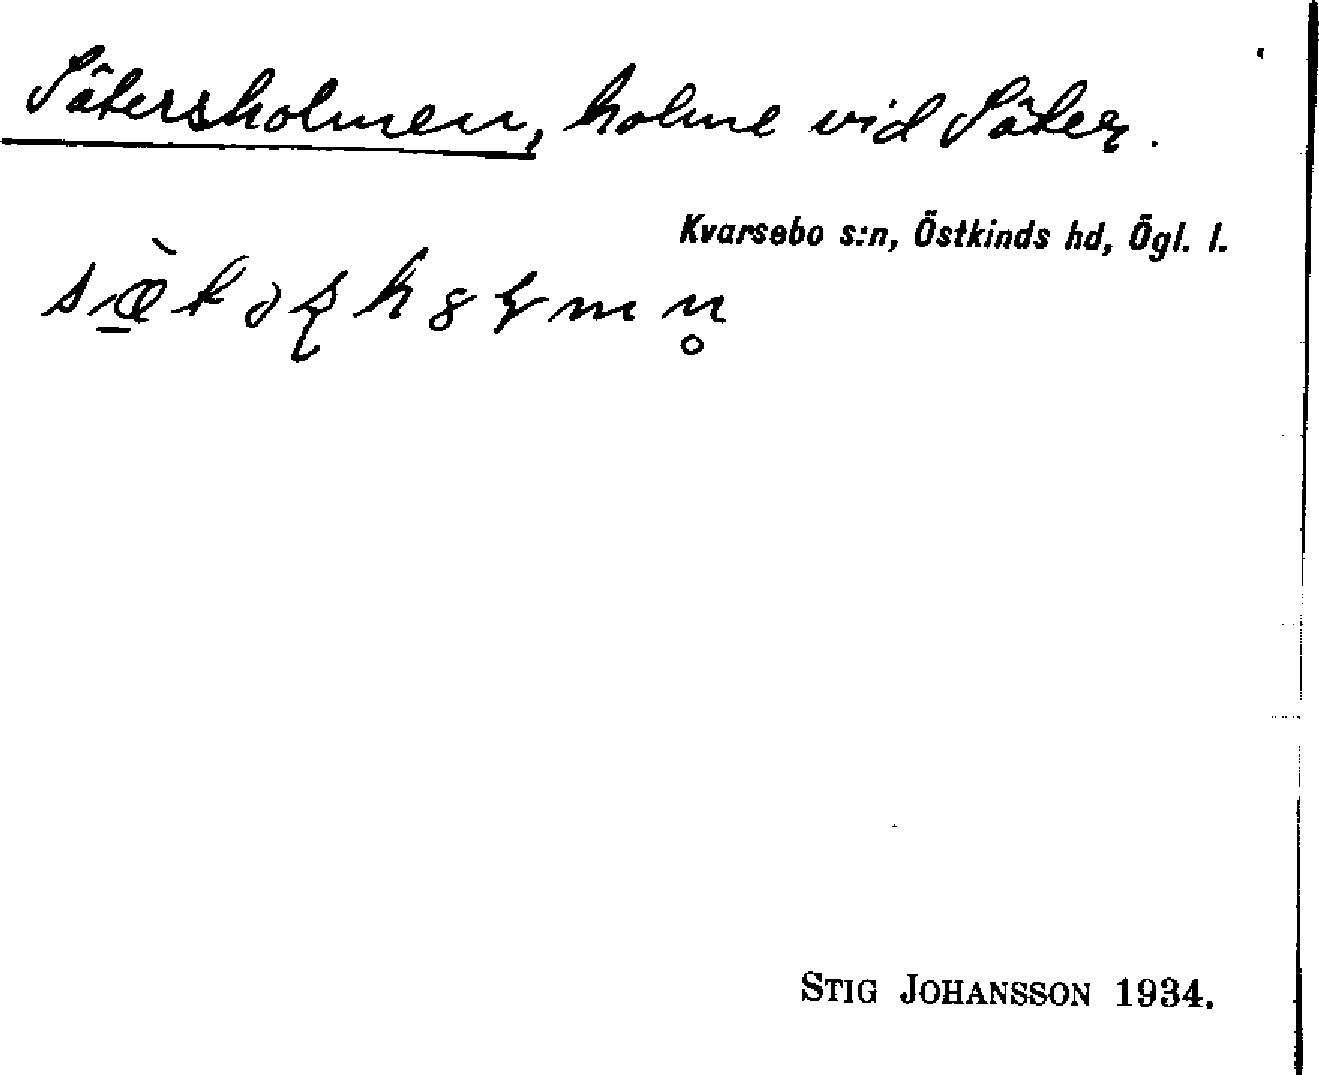 Sätersholmen, holme vid Säter.
Kvarsebo s:n, Östkinds hd, Ögl. l.
STIG JOHANSSON 1934.